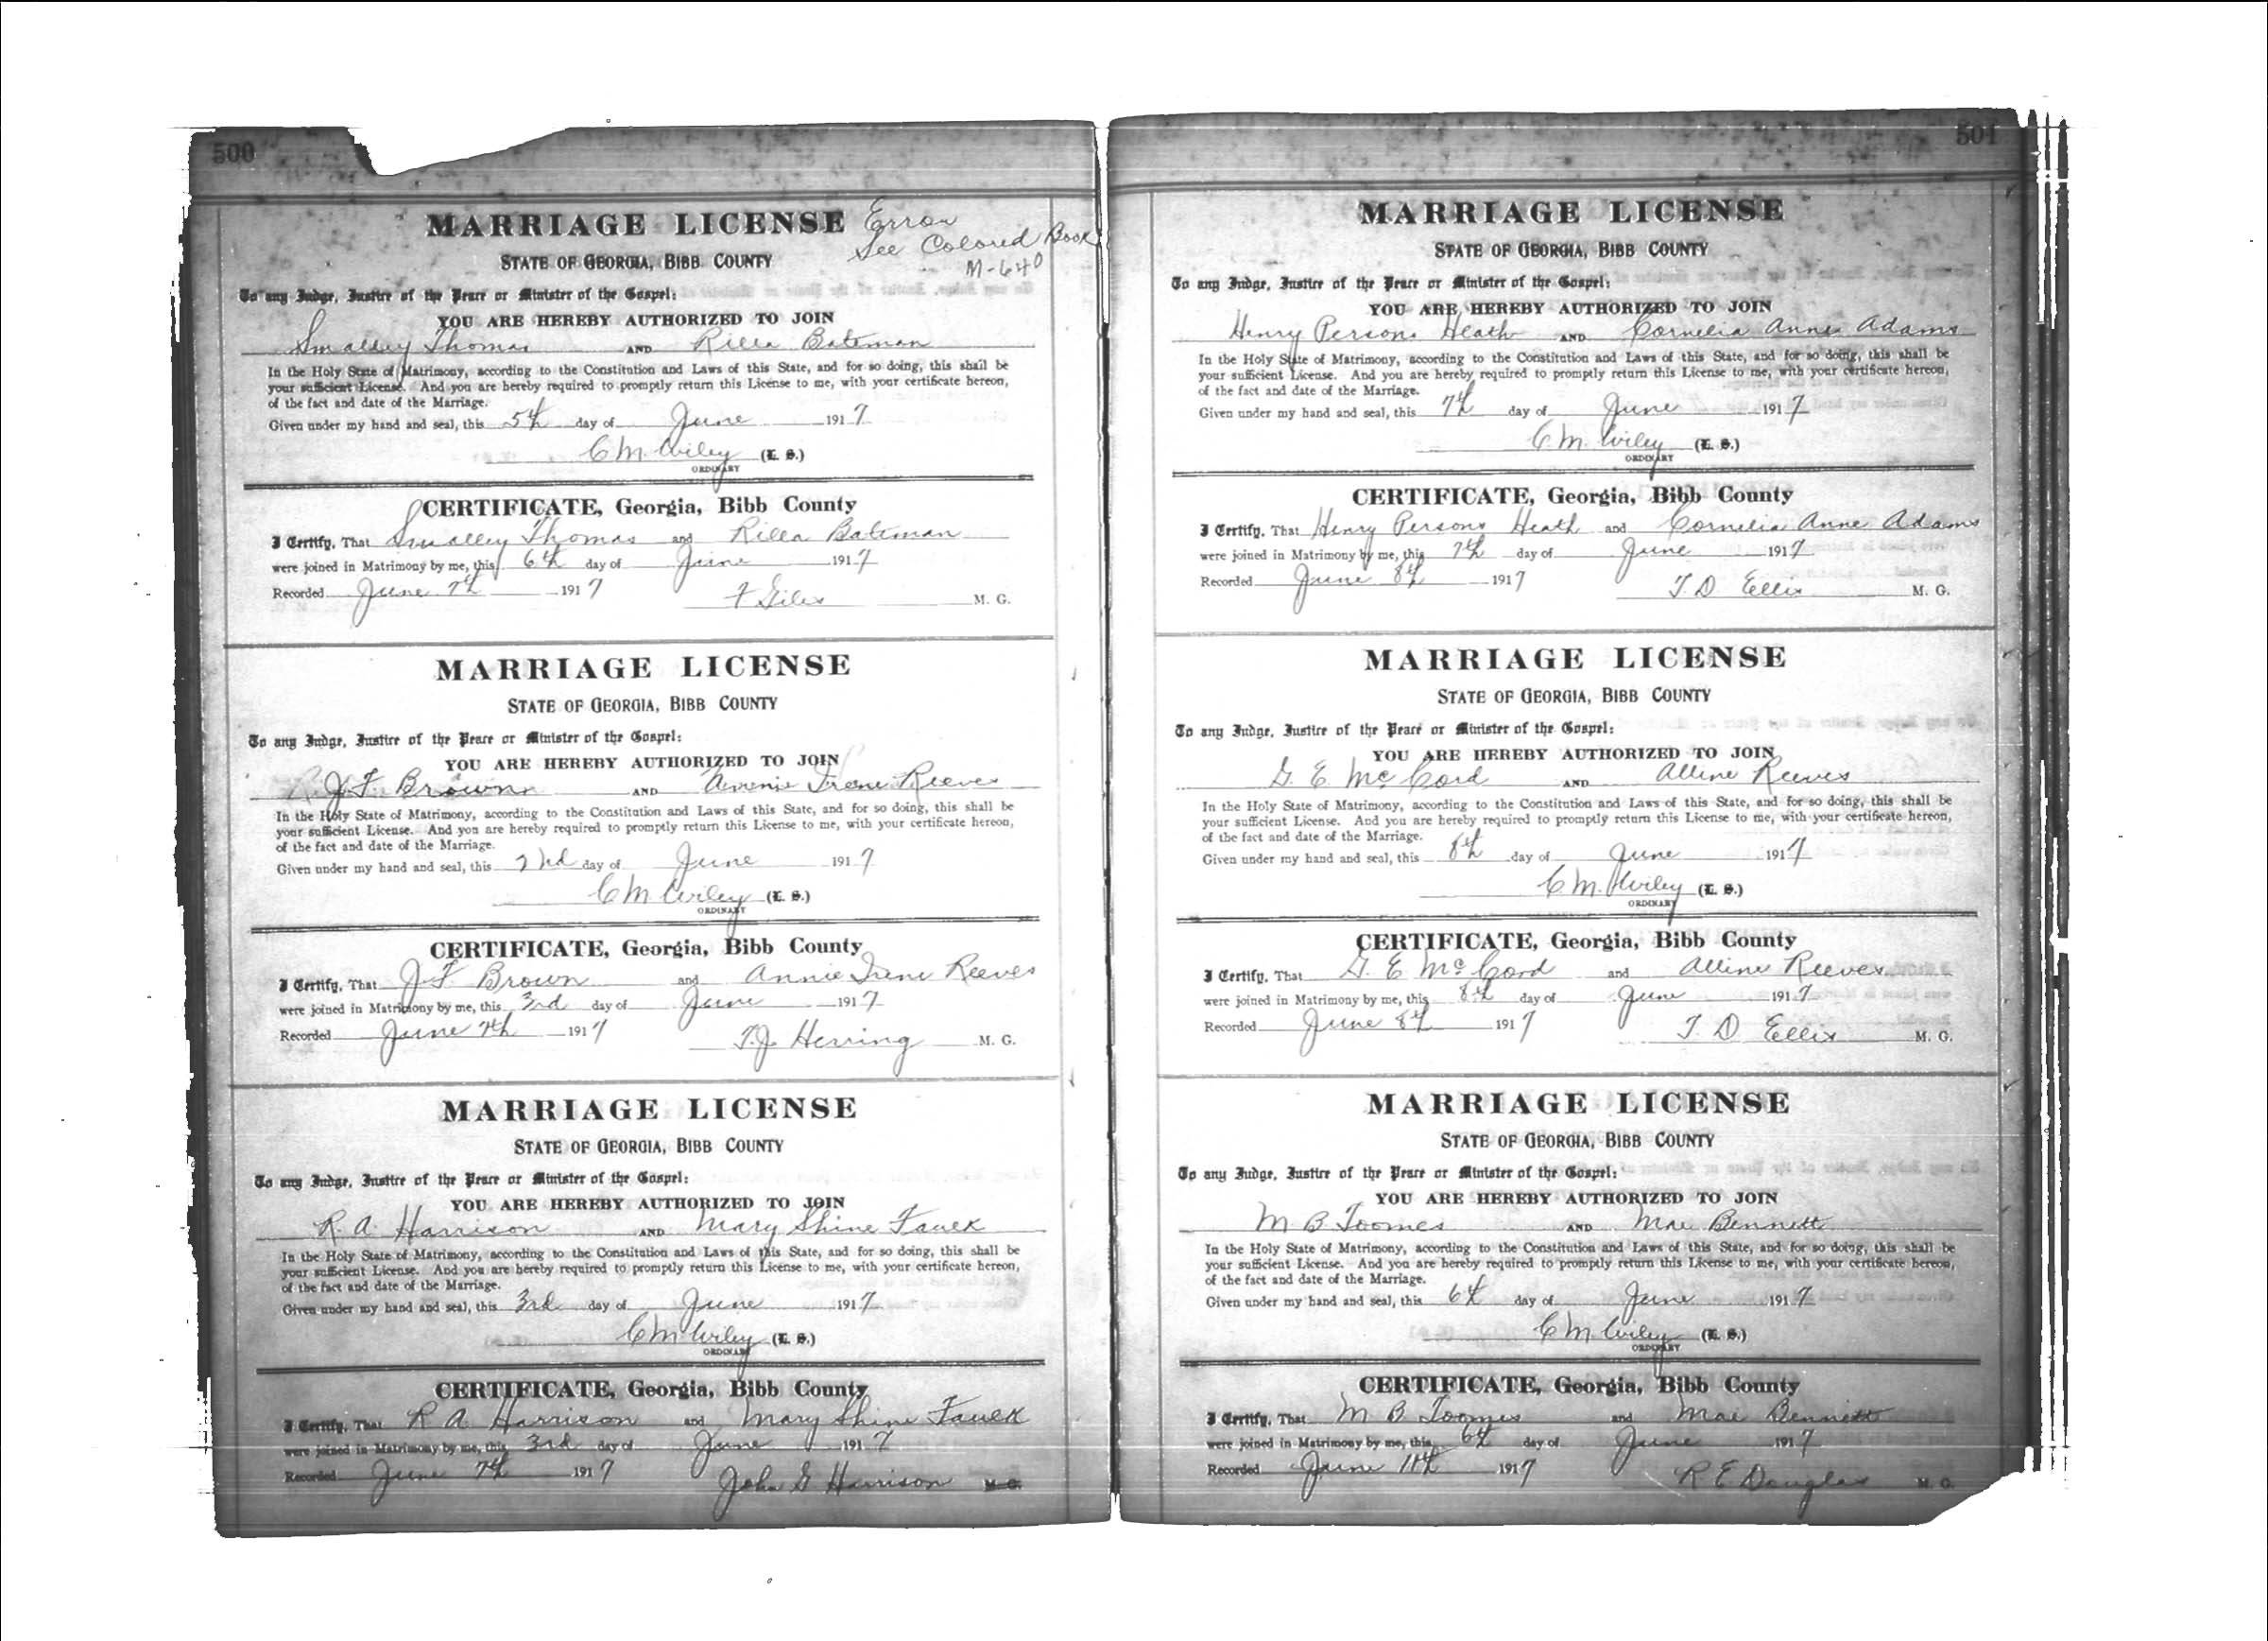 500
MARRIAGE LICENSE Error
See Colored Book
M-640
STATE OF GEORGIA, BIBB COUNTY
To any Judge, Justice of the Peace or Minister of the Gospel:
YOU ARE HEREBY AUTHORIZED TO JOIN
Smalley Thomas AND Rilla Bateman
In the Holy State of Matrimony, according to the Constitution and Laws of this State, and for so doing, this shall be
your sufficient License. And you are hereby required to promptly return this License to me, with your certificate hereon,
of the fact and date of the Marriage.
Given under my hand and seal, this 5th day of June 1917
C M Wiley (L. S.)
ORDINARY
CERTIFICATE, Georgia, Bibb County
I Certify, That Smalley Thomas and Rilla Bateman
were joined in Matrimony by me, this 6th day of June 1917
Recorded June 7th 1917 F Giles M. G.
MARRIAGE LICENSE
STATE OF GEORGIA, BIBB COUNTY
To any Judge, Justice of the Peace or Minister of the Gospel:
YOU ARE HEREBY AUTHORIZED TO JOIN
J F Brown AND Annie Irene Reeves
In the Holy State of Matrimony, according to the Constitution and Laws of this State, and for so doing, this shall be
your sufficient License. And you are hereby required to promptly return this License to me, with your certificate hereon,
of the fact and date of the Marriage.
Given under my hand and seal, this 2nd day of June 1917
C M Wiley (L. S.)
ORDINARY
CERTIFICATE, Georgia, Bibb County
I Certify, That J F Brown and Annie Irene Reeves
were joined in Matrimony by me, this 3rd day of June 1917
Recorded June 7th 1917 T. J Herring M. G.
MARRIAGE LICENSE
STATE OF GEORGIA, BIBB COUNTY
To any Judge, Justice of the Peace or Minister of the Gospel:
YOU ARE HEREBY AUTHORIZED TO JOIN
R. A. Harrison AND Mary Shine Faulk
In the Holy State of Matrimony, according to the Constitution and Laws of this State, and for so doing, this shall be
your sufficient License. And you are hereby required to promptly return this License to me, with your certificate hereon,
of the fact and date of the Marriage.
Given under my hand and seal, this 3rd day of June 1917
C M Wiley (L. S.)
ORDINARY
CERTIFICATE, Georgia, Bibb County
I Certify, That R A Harrison and Mary Shine Faulk
were joined in Matrimony by me, this 3rd day of June 1917
Recorded June 7th 1917 John G Harrison M. G.
501
MARRIAGE LICENSE
STATE OF GEORGIA, BIBB COUNTY
To any Judge, Justice of the Peace or Minister of the Gospel:
YOU ARE HEREBY AUTHORIZED TO JOIN
Henry Persons Heath AND Cornelia Anne Adams
In the Holy State of Matrimony, according to the Constitution and Laws of this State, and for so doing, this shall be
your sufficient License. And you are hereby required to promptly return this License to me, with your certificate hereon,
of the fact and date of the Marriage.
Given under my hand and seal, this 7th day of June 1917
C. M. Wiley (L. S.)
ORDINARY
CERTIFICATE, Georgia, Bibb County
I Certify, That Henry Persons Heath and Cornelia Anne Adams
were joined in Matrimony by me, this 7th day of June 1917
Recorded June 8th 1917 T. D Ellis M. G.
MARRIAGE LICENSE
STATE OF GEORGIA, BIBB COUNTY
To any Judge, Justice of the Peace or Minister of the Gospel:
YOU ARE HEREBY AUTHORIZED TO JOIN
G. E. McCord AND Alline Reeves
In the Holy State of Matrimony, according to the Constitution and Laws of this State, and for so doing, this shall be
your sufficient License. And you are hereby required to promptly return this License to me, with your certificate hereon,
of the fact and date of the Marriage.
Given under my hand and seal, this 8th day of June 1917
C. M. Wiley (L. S.)
ORDINARY
CERTIFICATE, Georgia, Bibb County
I Certify, That G. E McCord and Alline Reeves
were joined in Matrimony by me, this 8th day of June 1917
Recorded June 8th 1917 T. D. Ellis M. G.
MARRIAGE LICENSE
STATE OF GEORGIA, BIBB COUNTY
To any Judge, Justice of the Peace or Minister of the Gospel:
YOU ARE HEREBY AUTHORIZED TO JOIN
M B Toomes AND Mae Bennett
In the Holy State of Matrimony, according to the Constitution and Laws of this State, and for so doing, this shall be
your sufficient License. And you are hereby required to promptly return this License to me, with your certificate hereon,
of the fact and date of the Marriage.
Given under my hand and seal, this 6th day of June 1917
C M Wiley (L. S.)
ORDINARY
CERTIFICATE, Georgia, Bibb County
I Certify, That M B Toomes and Mae Bennett
were joined in Matrimony by me, this 6th day of June 1917
Recorded June 11th 1917 R E Douglas M. G.